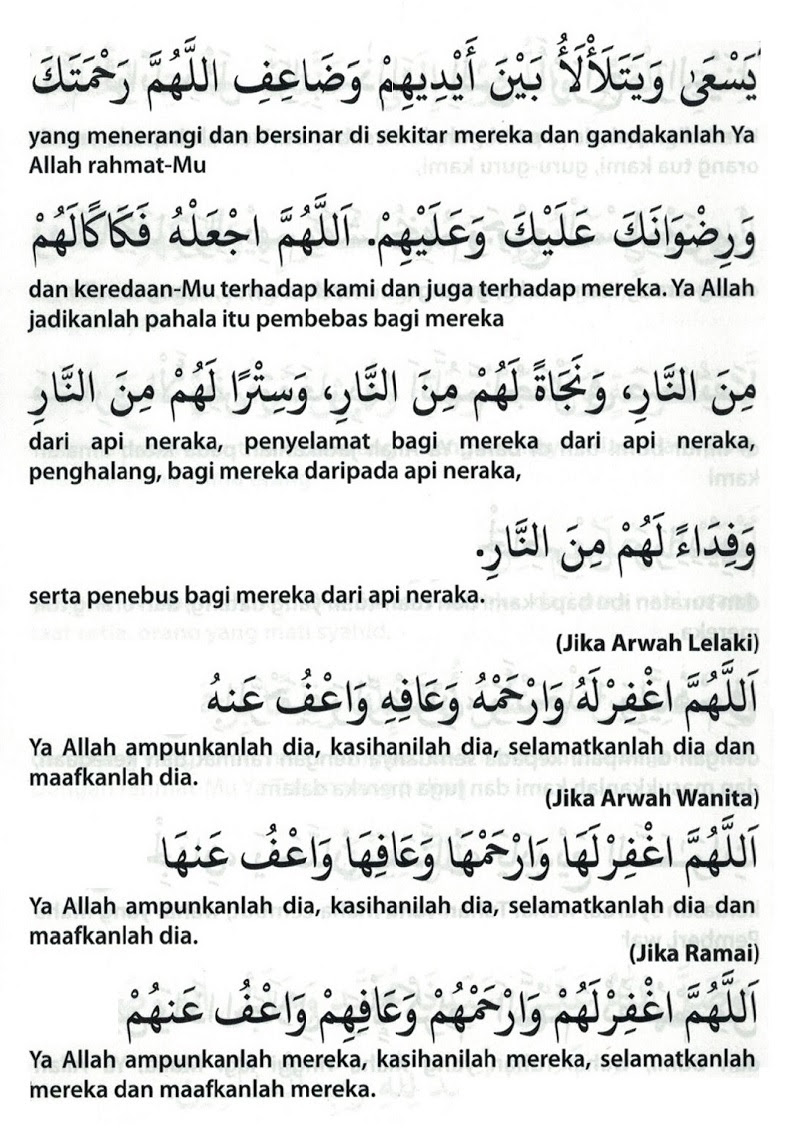 يَسْعَىٰ وَيَتَلَأْلَأُ بَيْنَ أَيْدِيهِمْ وَضَاعِفِ اللَّهُمَّ رَحْمَتَكَ
yang menerangi dan bersinar di sekitar mereka dan gandakanlah Ya
Allah rahmat-Mu
وَرِضْوَانَكَ عَلَيْكَ وَعَلَيْهِمْ. اَللَّهُمَّ اجْعَلْهُ فَكَاكًالَهُمْ
dan keredaan-Mu terhadap kami dan juga terhadap mereka. Ya Allah
jadikanlah pahala itu pembebas bagi mereka
مِنَ النَّارِ، وَنَجَاةً لَهُمْ مِنَ النَّارِ، وَسِتْرًا لَهُمْ مِنَ النَّارِ
dari api neraka, penyelamat bagi mereka dari api neraka,
penghalang, bagi mereka daripada api neraka,
وَفِدَاءً لَهُمْ مِنَ النَّارِ.
serta penebus bagi mereka dari api neraka.
(Jika Arwah Lelaki)
اَللَّهُمَّ اغْفِرْلَهُ وَارْحَمْهُ وَعَافِهِ وَاعْفُ عَنهُ
Ya Allah ampunkanlah dia, kasihanilah dia, selamatkanlah dia dan
maafkanlah dia.
(Jika Arwah Wanita)
اَللَّهُمَّ اغْفِرْلَهَا وَارْحَمْهَا وَعَافِهَا وَاعْفُ عَنهَا
Ya Allah ampunkanlah dia, kasihanilah dia, selamatkanlah dia dan
maafkanlah dia.
(Jika Ramai)
اَللَّهُمَّ اغْفِرْلَهُمْ وَارْحَمْهُمْ وَعَافِهِمْ وَاعْفُ عَنهُمْ
Ya Allah ampunkanlah mereka, kasihanilah mereka, selamatkanlah
mereka dan maafkanlah mereka.